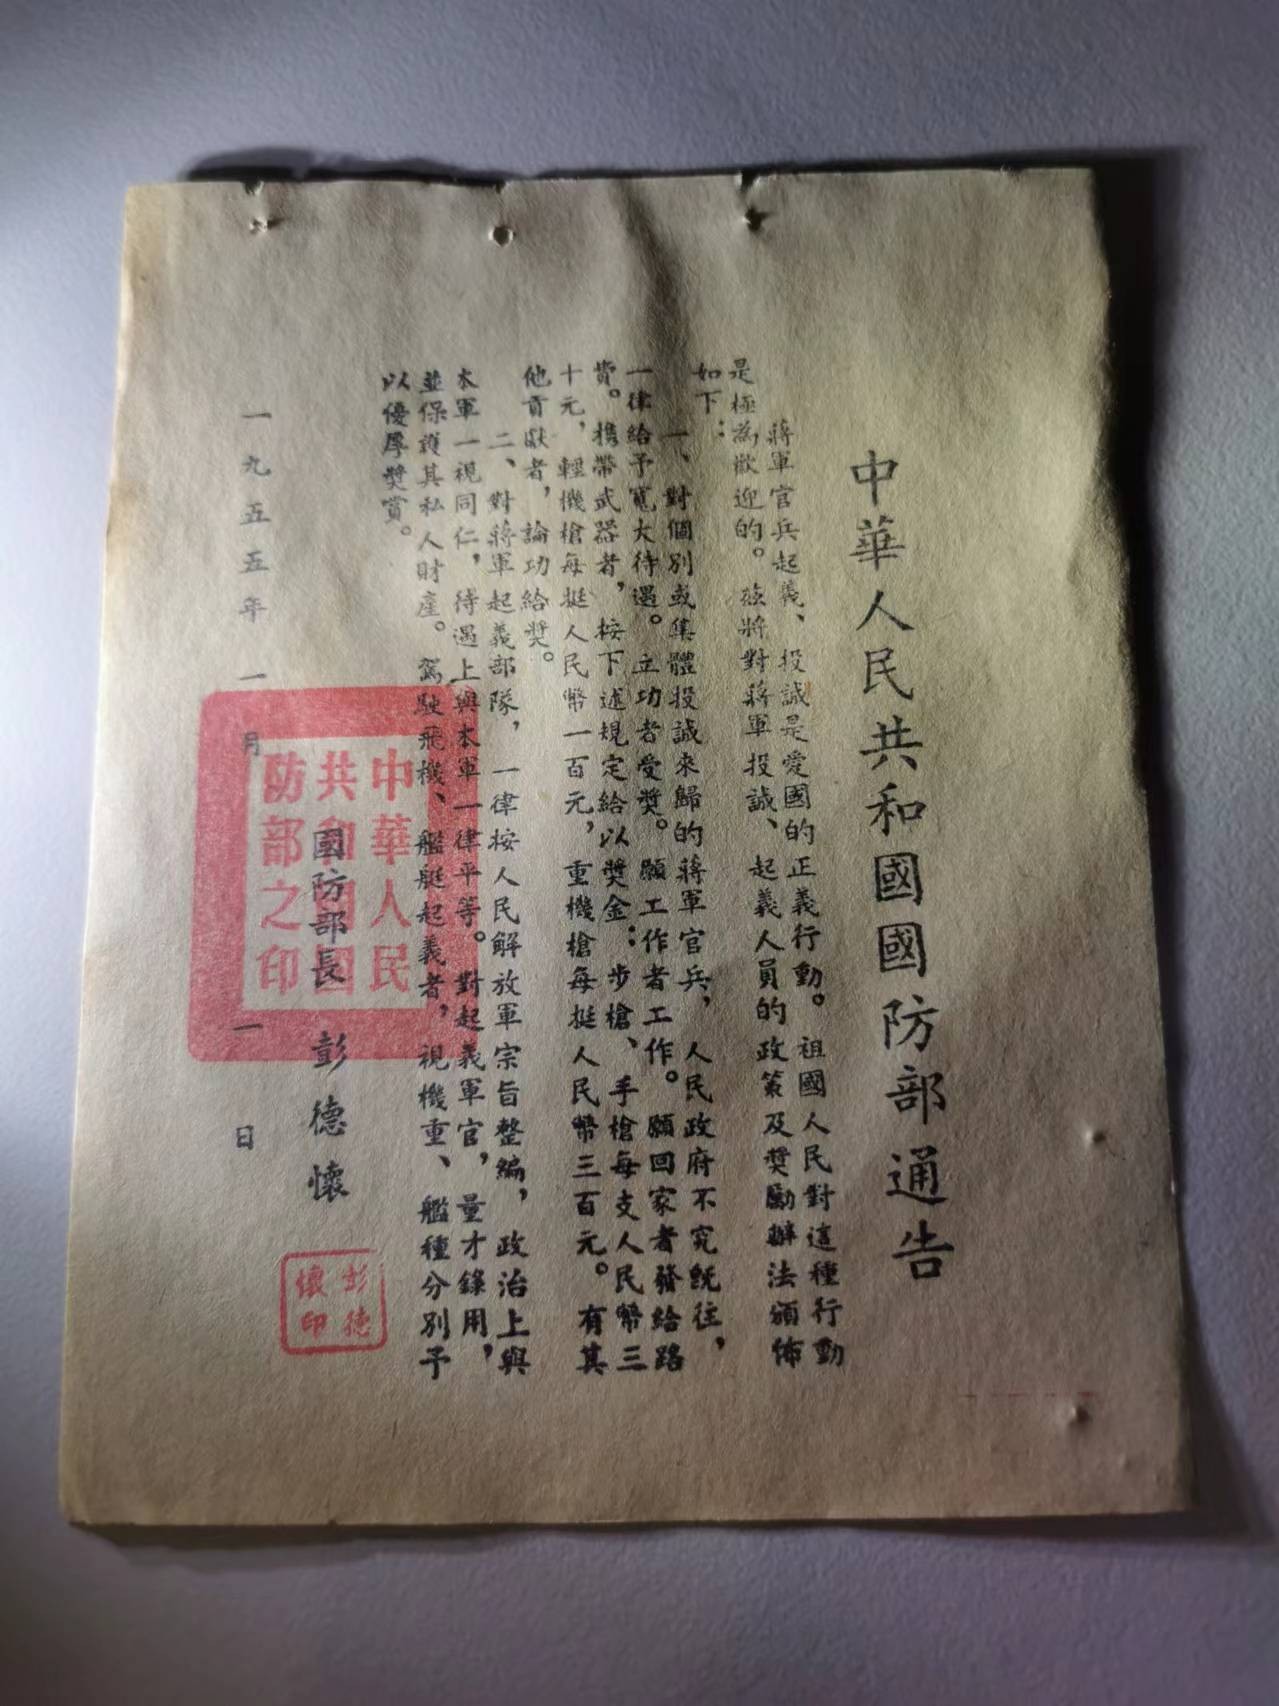 中華人民共和國國防部通告
蔣軍官兵起義、投誠是愛國的正義行動。祖國人民對這種行動
是極為歡迎的。茲將對蔣軍投誠、起義人員的政策及獎勵辦法頒佈
如下：
一、對個別或集體投誠來歸的蔣軍官兵，人民政府不究既往，
一律給予寬大待遇。立功者受獎。願工作者工作。願回家者發給路
費。攜帶武器者，按下述規定給以獎金：步槍、手槍每支人民幣三
十元，輕機槍每挺人民幣一百元，重機槍每挺人民幣三百元。有其
他貢獻者，論功給獎。
二、對蔣軍起義部隊，一律按人民解放軍宗旨整編，政治上與
本軍一視同仁，待遇上與本軍一律平等。對起義軍官，量才錄用，
並保護其私人財產。駕駛飛機、艦艇起義者，視機重、艦種分別予
以優厚獎賞。
國防部長 彭德懷
彭德懷印
一九五五年一月一日
中華人民共和國國防部之印